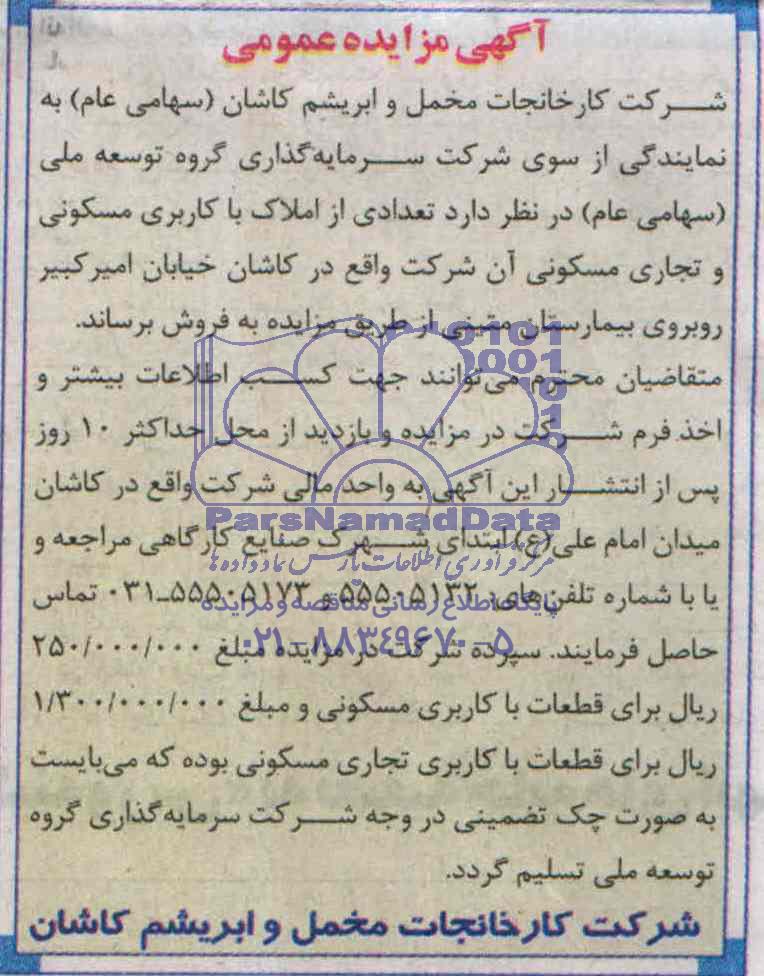 آگهی مزایده عمومی
شرکت کارخانجات مخمل و ابریشم کاشان (سهامی عام) به
نمایندگی از سوی شرکت سرمایه‌گذاری گروه توسعه ملی
(سهامی عام) در نظر دارد تعدادی از املاک با کاربری مسکونی
و تجاری مسکونی آن شرکت واقع در کاشان خیابان امیرکبیر
روبروی بیمارستان متینی از طریق مزایده به فروش برساند.
متقاضیان محترم می‌توانند جهت کسب اطلاعات بیشتر و
اخذ فرم شرکت در مزایده و بازدید از محل حداکثر ۱۰ روز
پس از انتشار این آگهی به واحد مالی شرکت واقع در کاشان
ParsNamadData
میدان امام علی(ع) ابتدای شهرک صنایع کارگاهی مراجعه و
مرکز فرآوری اطلاعات پارس نماد داده‌ها
یا با شماره تلفن‌های: ۵۵۵۰۵۱۳۲ و ۵۵۵۰۵۱۷۳-۰۳۱ تماس
پایگاه اطلاع رسانی مناقصه و مزایده
حاصل فرمایند. سپرده شرکت در مزایده مبلغ ۲۵۰/۰۰۰/۰۰۰
۰۲۱-۸۸۳۴۹۶۷۰-۵
ریال برای قطعات با کاربری مسکونی و مبلغ ۱/۳۰۰/۰۰۰/۰۰۰
ریال برای قطعات با کاربری تجاری مسکونی بوده که می‌بایست
به صورت چک تضمینی در وجه شرکت سرمایه‌گذاری گروه
توسعه ملی تسلیم گردد.
شرکت کارخانجات مخمل و ابریشم کاشان